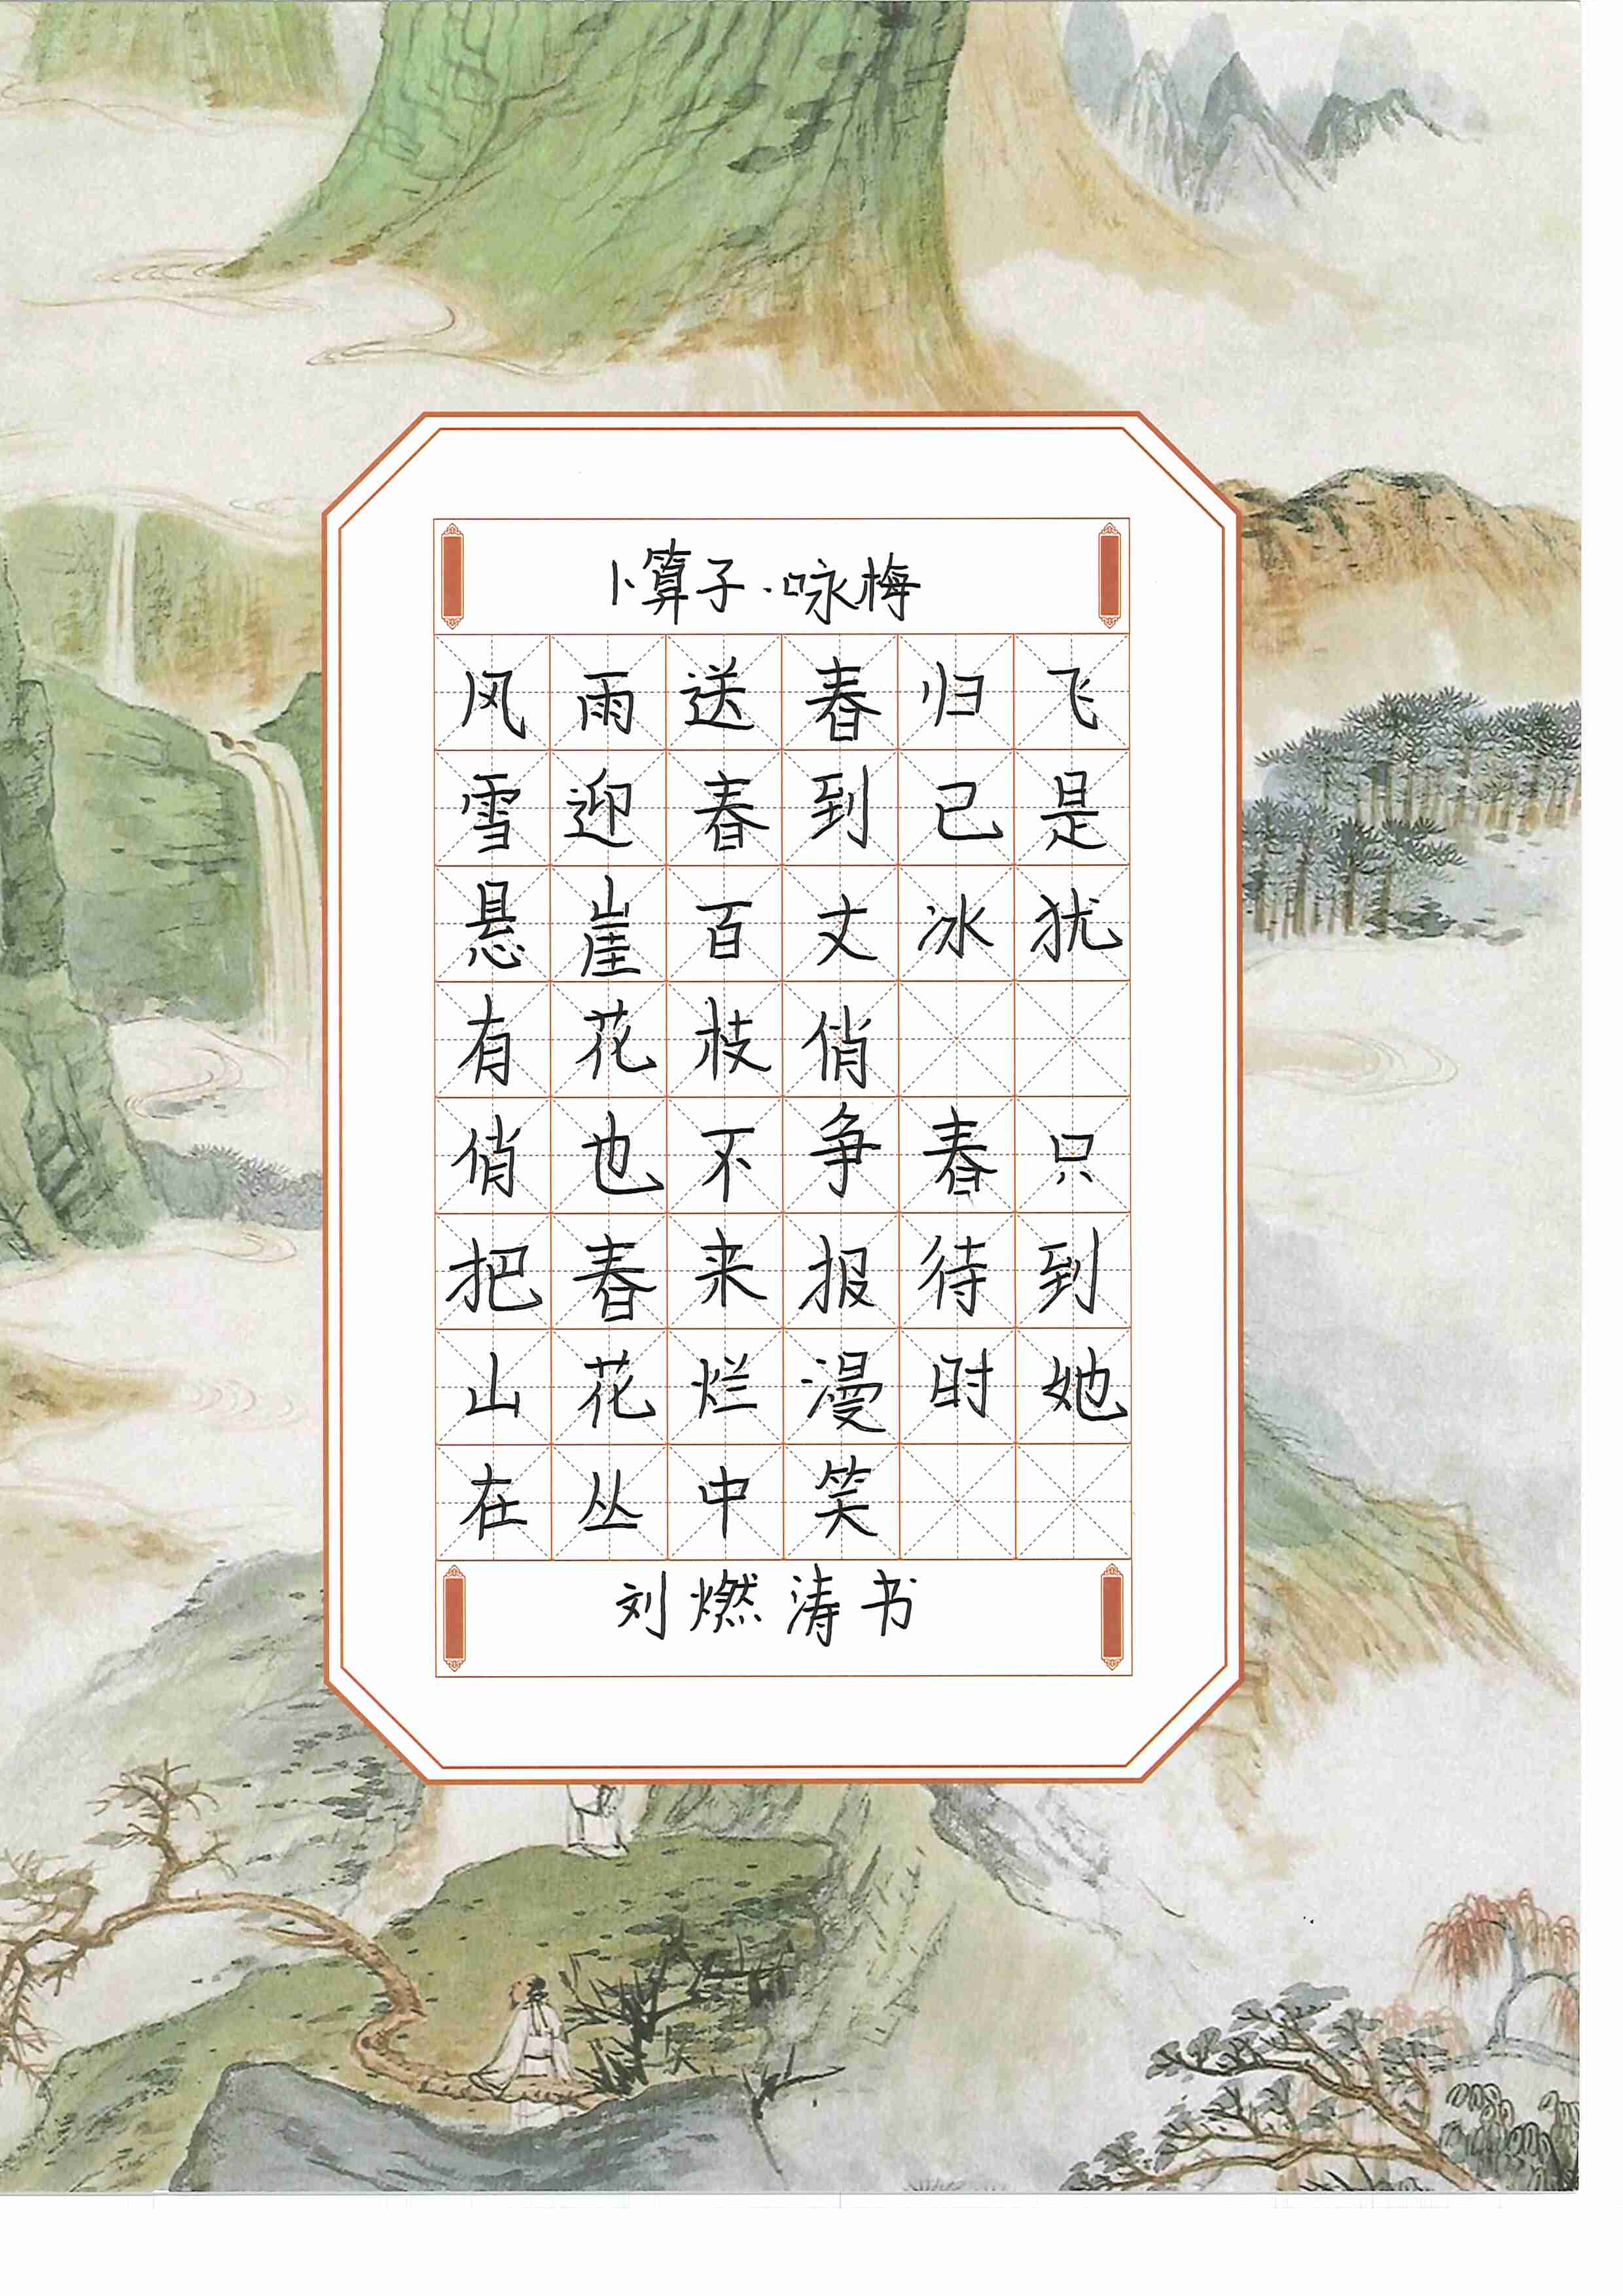 卜算子·咏梅
风雨送春归飞
雪迎春到已是
悬崖百丈冰犹
有花枝俏
俏也不争春只
把春来报待到
山花烂漫时她
在丛中笑
刘燃涛书